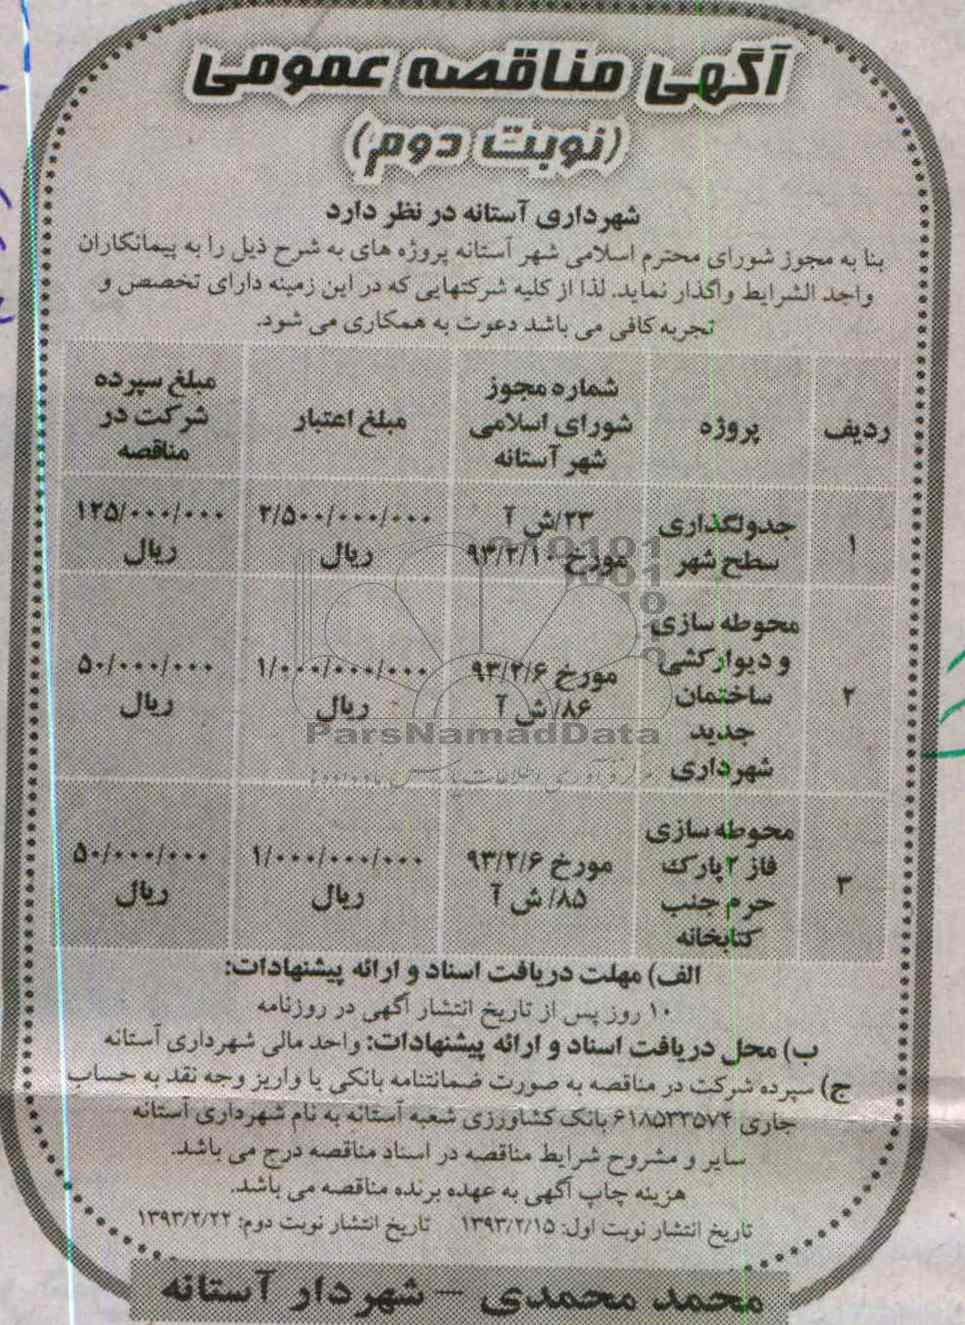 آگهی مناقصه عمومی
(نوبت دوم)
شهرداری آستانه در نظر دارد
بنا به مجوز شورای محترم اسلامی شهر آستانه پروژه های به شرح ذیل را به پیمانکاران
واجد الشرایط واگذار نماید. لذا از کلیه شرکتهایی که در این زمینه دارای تخصص و
تجربه کافی می باشد دعوت به همکاری می شود.
ردیف
پروژه
شماره مجوز
شورای اسلامی
شهر آستانه
مبلغ اعتبار
مبلغ سپرده
شرکت در
مناقصه
۱
جدولگذاری
سطح شهر
۲۳/ش آ
مورخ ۹۳/۲/۱۰
۲/۵۰۰/۰۰۰/۰۰۰
ریال
۱۲۵/۰۰۰/۰۰۰
ریال
۲
محوطه سازی
و دیوارکشی
ساختمان
جدید
شهرداری
مورخ ۹۳/۲/۶
۸۶/ ش آ
۱/۰۰۰/۰۰۰/۰۰۰
ریال
۵۰/۰۰۰/۰۰۰
ریال
۳
محوطه سازی
فاز ۲ پارک
حرم جنب
کتابخانه
مورخ ۹۳/۲/۶
۸۵/ ش آ
۱/۰۰۰/۰۰۰/۰۰۰
ریال
۵۰/۰۰۰/۰۰۰
ریال
الف) مهلت دریافت اسناد و ارائه پیشنهادات:
۱۰ روز پس از تاریخ انتشار آگهی در روزنامه
ب) محل دریافت اسناد و ارائه پیشنهادات: واحد مالی شهرداری آستانه
ج) سپرده شرکت در مناقصه به صورت ضمانتنامه بانکی یا واریز وجه نقد به حساب
جاری ۶۱۸۵۳۳۵۷۴ بانک کشاورزی شعبه آستانه به نام شهرداری آستانه
سایر و مشروح شرایط مناقصه در اسناد مناقصه درج می باشد.
هزینه چاپ آگهی به عهده برنده مناقصه می باشد.
تاریخ انتشار نوبت اول: ۱۳۹۳/۲/۱۵ تاریخ انتشار نوبت دوم: ۱۳۹۳/۲/۲۲
محمد محمدی - شهردار آستانه
ParsNamadData